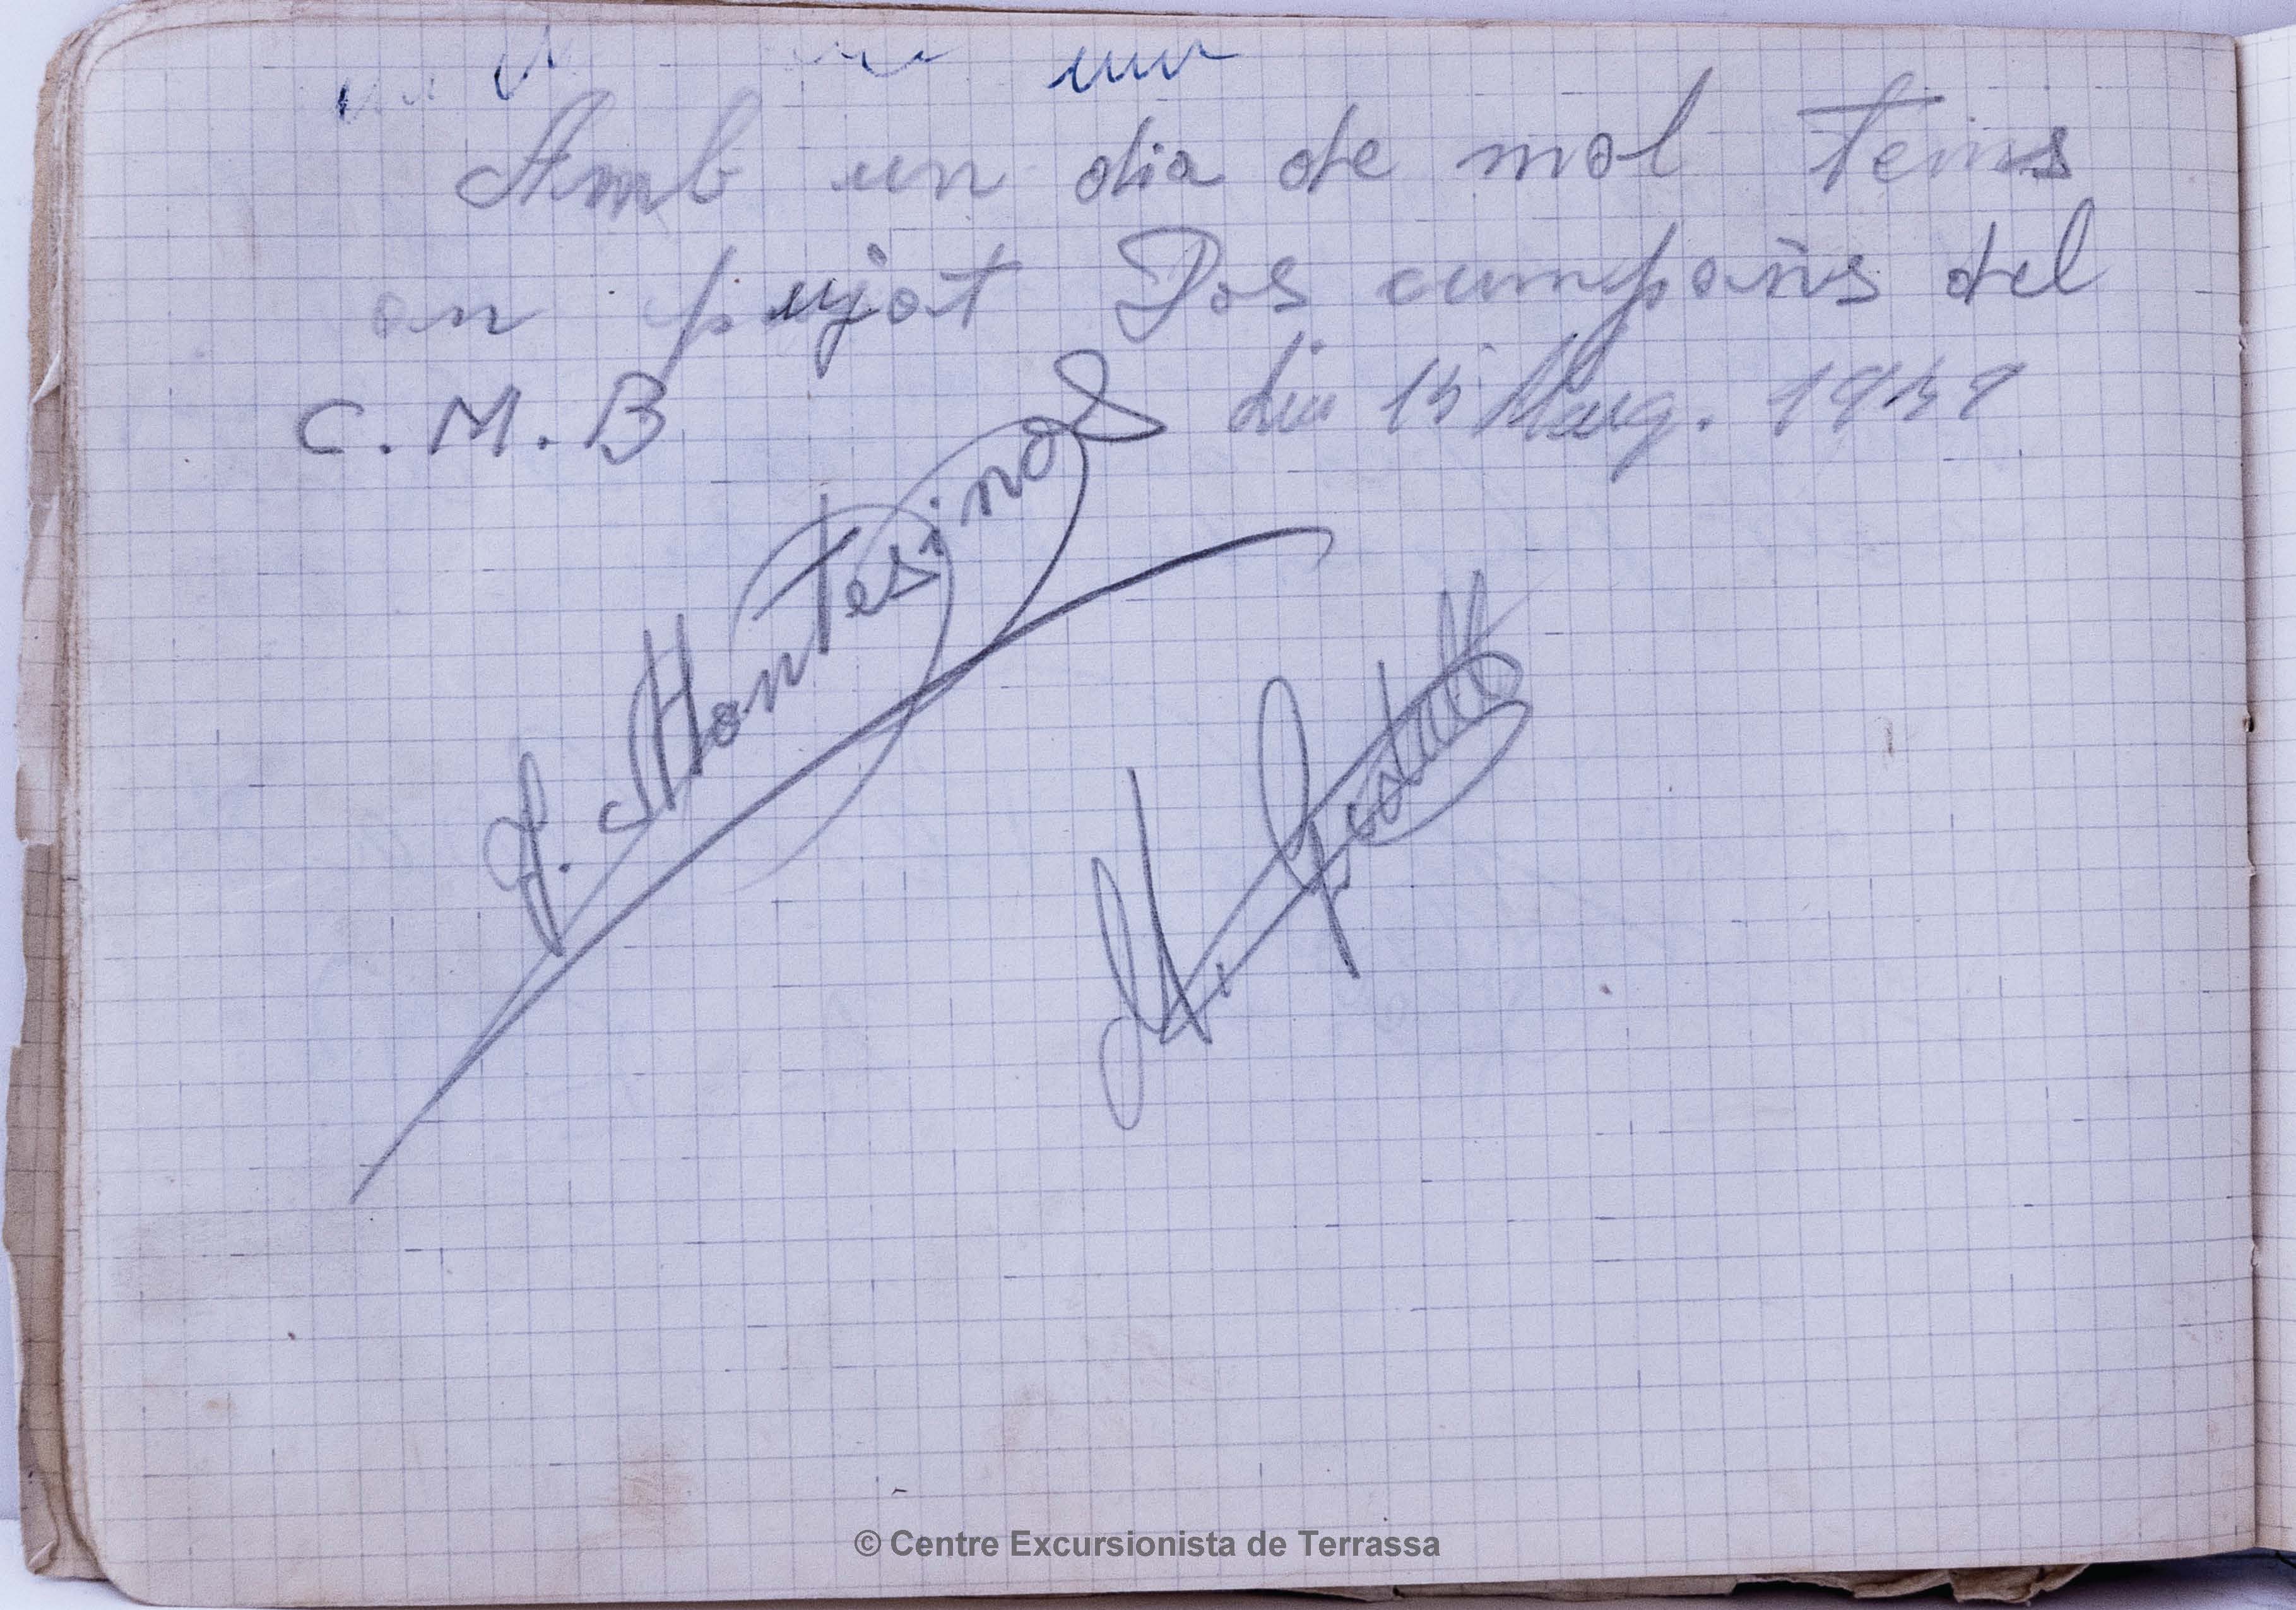 Amb un dia de mol tems
an pujat Dos cumpañs del
C.M.B dia 15 Març. 1959
J. Montesinos
© Centre Excursionista de Terrassa